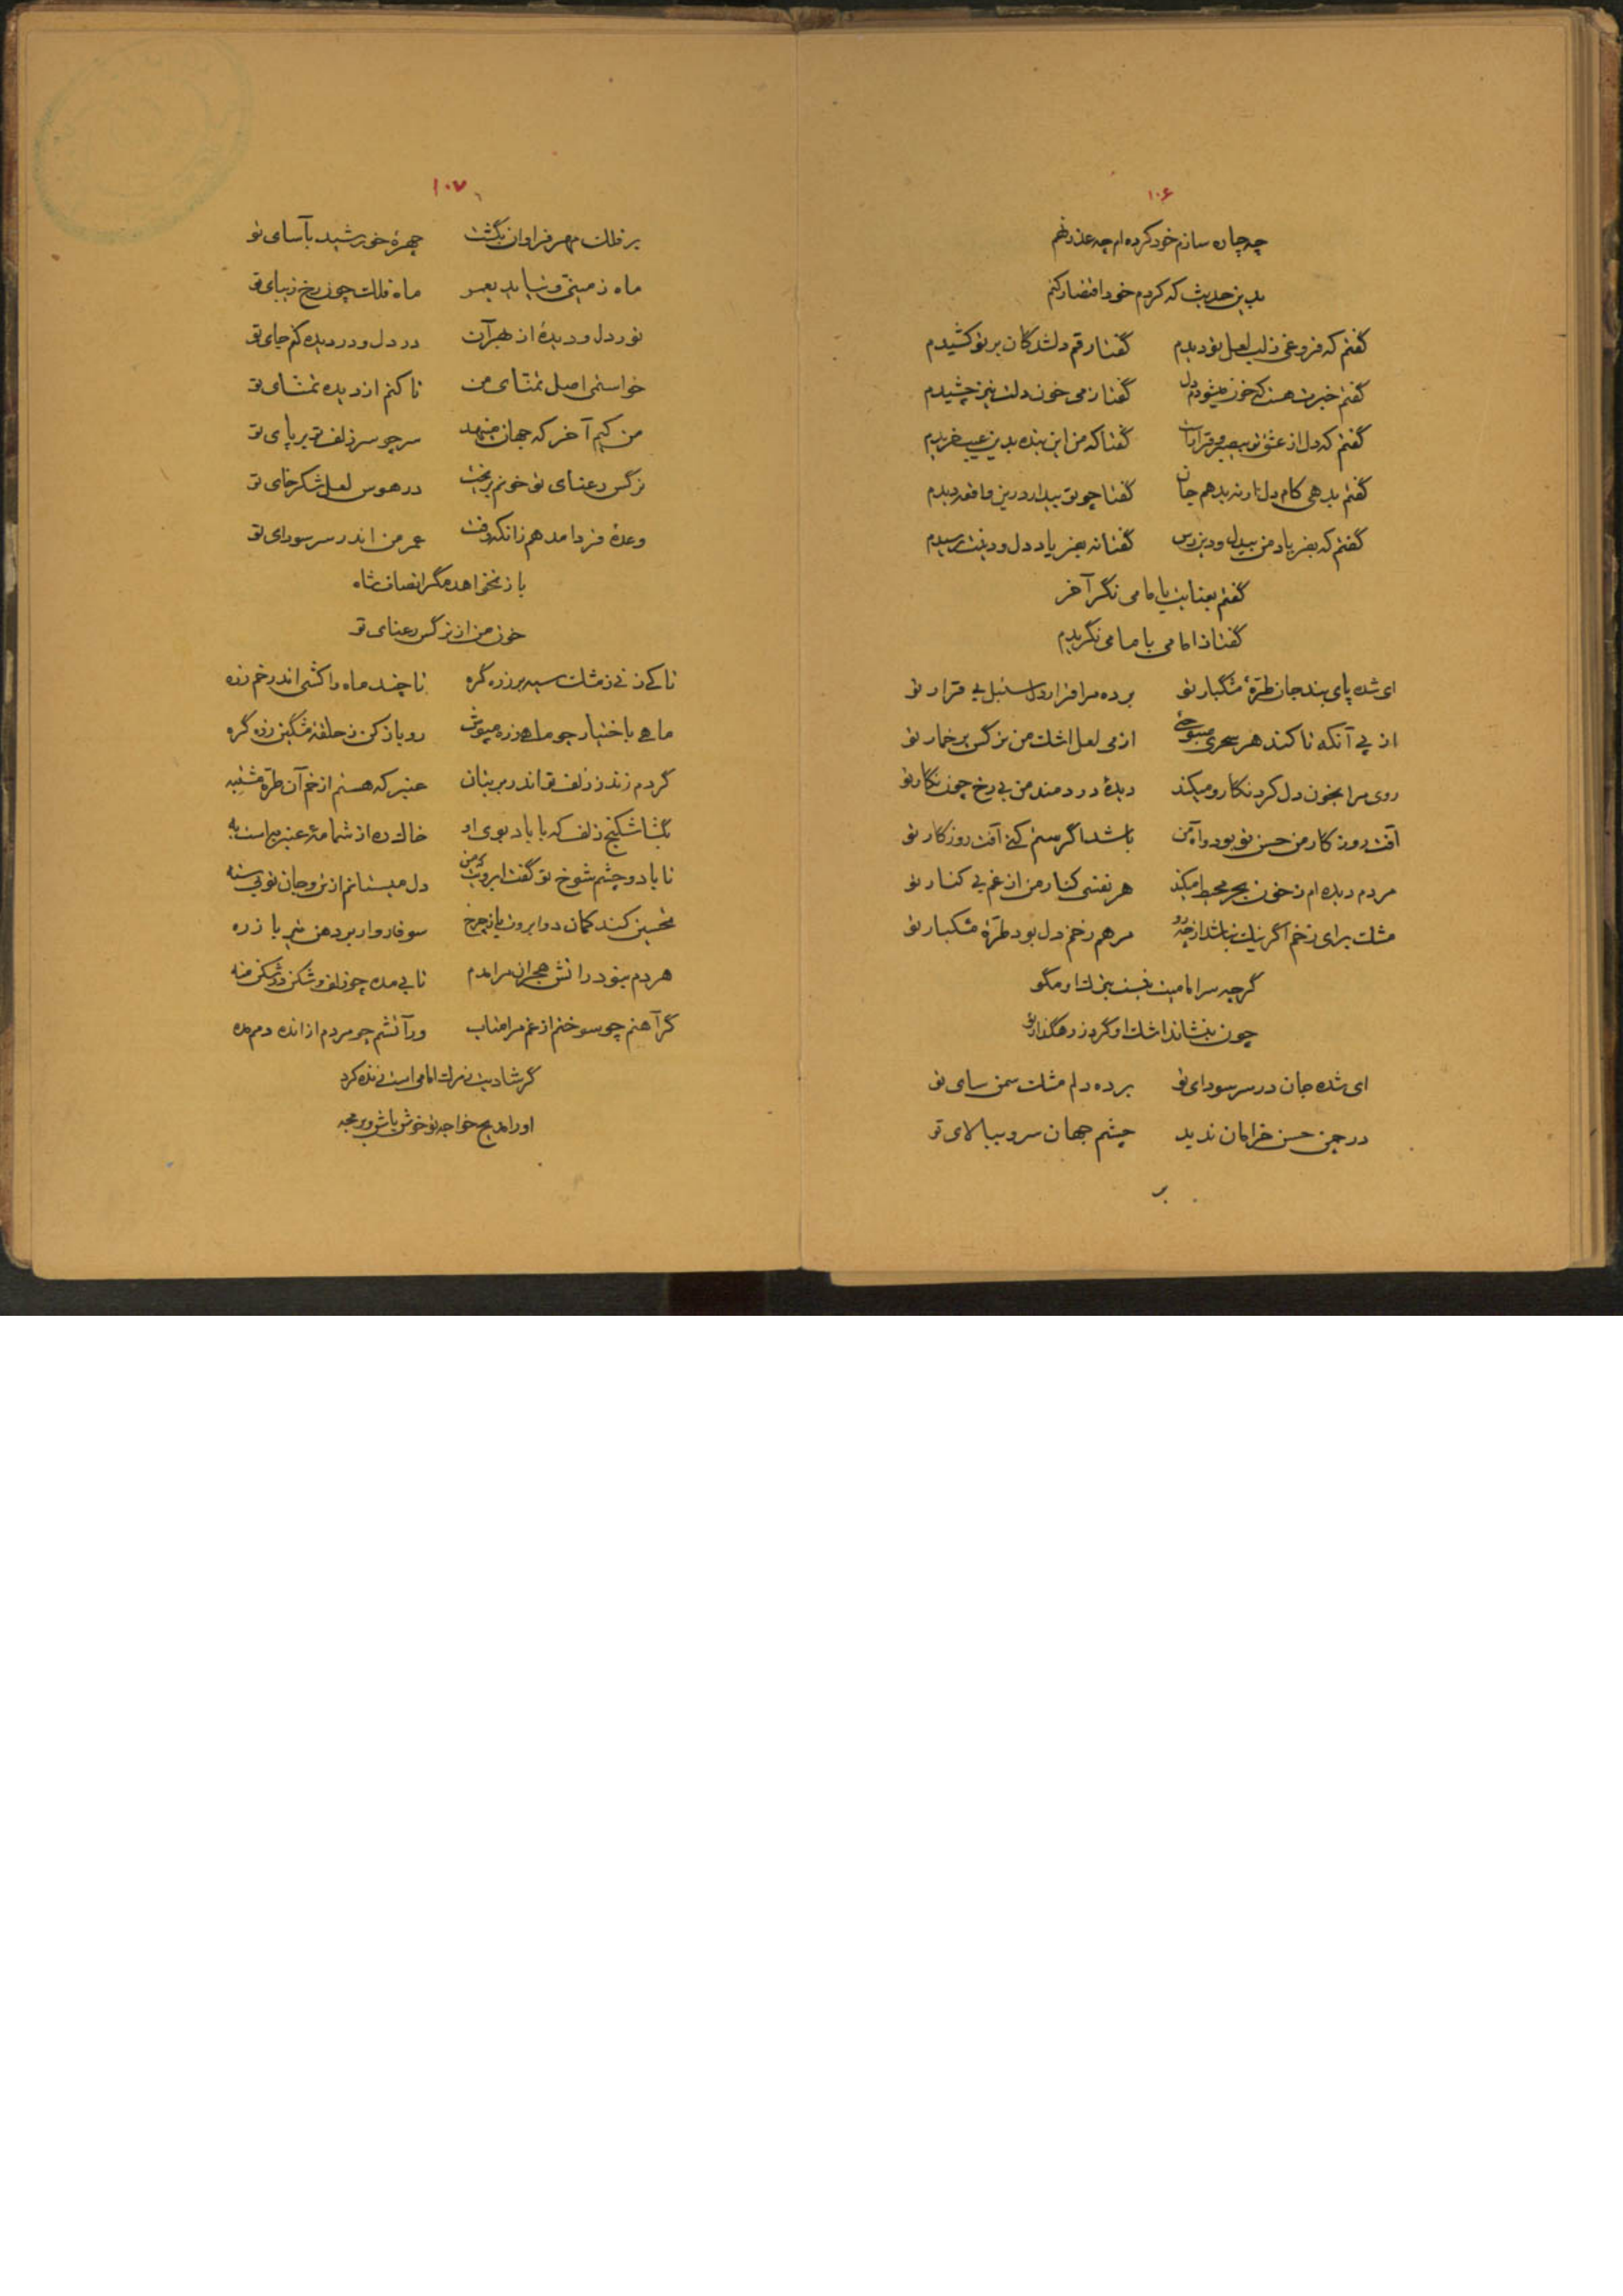 ۱۰۶
چه چاره سازم خود کرده‌ام چه عذر نهم
بدین حدیث که کردم خود اختصار کنم
گفتم که فروغی ز لب لعل تو دیدم گفتا رقم دلشدگان بر تو کشیدم
گفتم خبرت هست که خون میشودم دل گفتا ز می خون دلت نیز چشیدم
گفتم که دل از عشق تو بی صبر و قرارست گفتا که من این بنده بدین عیب خریدم
گفتم بدهی کام دل ار نه بدهم جان گفتا چو تو بیدار درین واقعه دیدم
گفتم که بفریاد من بیدل و دین رس گفتا نه بفریاد دل و دینت رسیدم
گفتم بعنایت با ما می نگر آخر
گفتا ز امامی با ما می نگریدم
ای شده پای بند جان طرهٔ مشگبار تو برده مرا قرار دل سنبل بی قرار تو
از پی آنکه تا کند هر سحری صبوحی از می لعل اشک من نرگس پر خمار تو
روی مرا بخون دل کرد نگار و میکند دیدهٔ دردمند من بی رخ چون نگار تو
آفت روزگار من حسن تو بود و آه من باشد اگر ستم کنی آفت روزگار تو
مردم دیده‌ام ز خون بحر محیط میکند هر نفسی کنار من از غم بی کنار تو
مشک برای زخم اگر نیک نباشد از چه رو مرهم زخم دل بود طرهٔ مشکبار تو
گرچه سر امامیت نیست بترک او مگو
چون بنشاند اشک او گرد ز رهگذار تو
ای شده جان در سر سودای تو برده دلم مشک سمن سای تو
در چمن حسن خرامان ندید چشم جهان سرو ببالای تو
بر
۱۰۷
بر فلک مهر فراوان بگشت چهرهٔ خورشید بآسای تو
ماه زمینی و نیاید بعمر ماه فلک چون رخ زیبای تو
نور دل و دیدهٔ از بهر آن در دل و در دیده کنم جای تو
خواستمی اصل تمنای من تا کنم از دیده تمشای تو
من کیم آخر که جهان مینهد سر چو سر زلف تو بر پای تو
نرگس رعنای تو خونم بریخت در هوس لعل شکر خای تو
وعدهٔ فردا مدهم زانکه رفت عمر من اندر سر سودای تو
باز نخواهد مگر انصاف شاه
خون من از نرگس رعنای تو
تا کی زنی ز مشک سیه بر زره گره تا چند ماه را کشی اندر خم زره
ماهی باختیار چو ماهی زره مپوش رو باز کن ز حلقهٔ مشگین زره گره
کژدم زند ز زلف تو اندر بر بتان عنبر که هستم از خم آن طرهٔ مشتبه
بگشا شکنج زلف که با باد بوی او خاک ره از شمامهٔ عنبر بسی است به
تا با دو چشم شوخ تو گفت ابرویت که من دل میستانم از تن و جان تو بی ستنه
تحسین کند کمان دو ابروت را ز چرخ سوفار وار بر دهن تیر با زره
هر دم بتو در آتش هجران مرا مدم تابی مده چو زلف و شکن در شکن منه
گر آهنم چو سوختم از غم مرا متاب ور آتشم چو مردم از انده دمم مده
گر شادیت بمرگ امامی است زنده کرد
او را مدیح خواجه تو خوش باش و برمجه